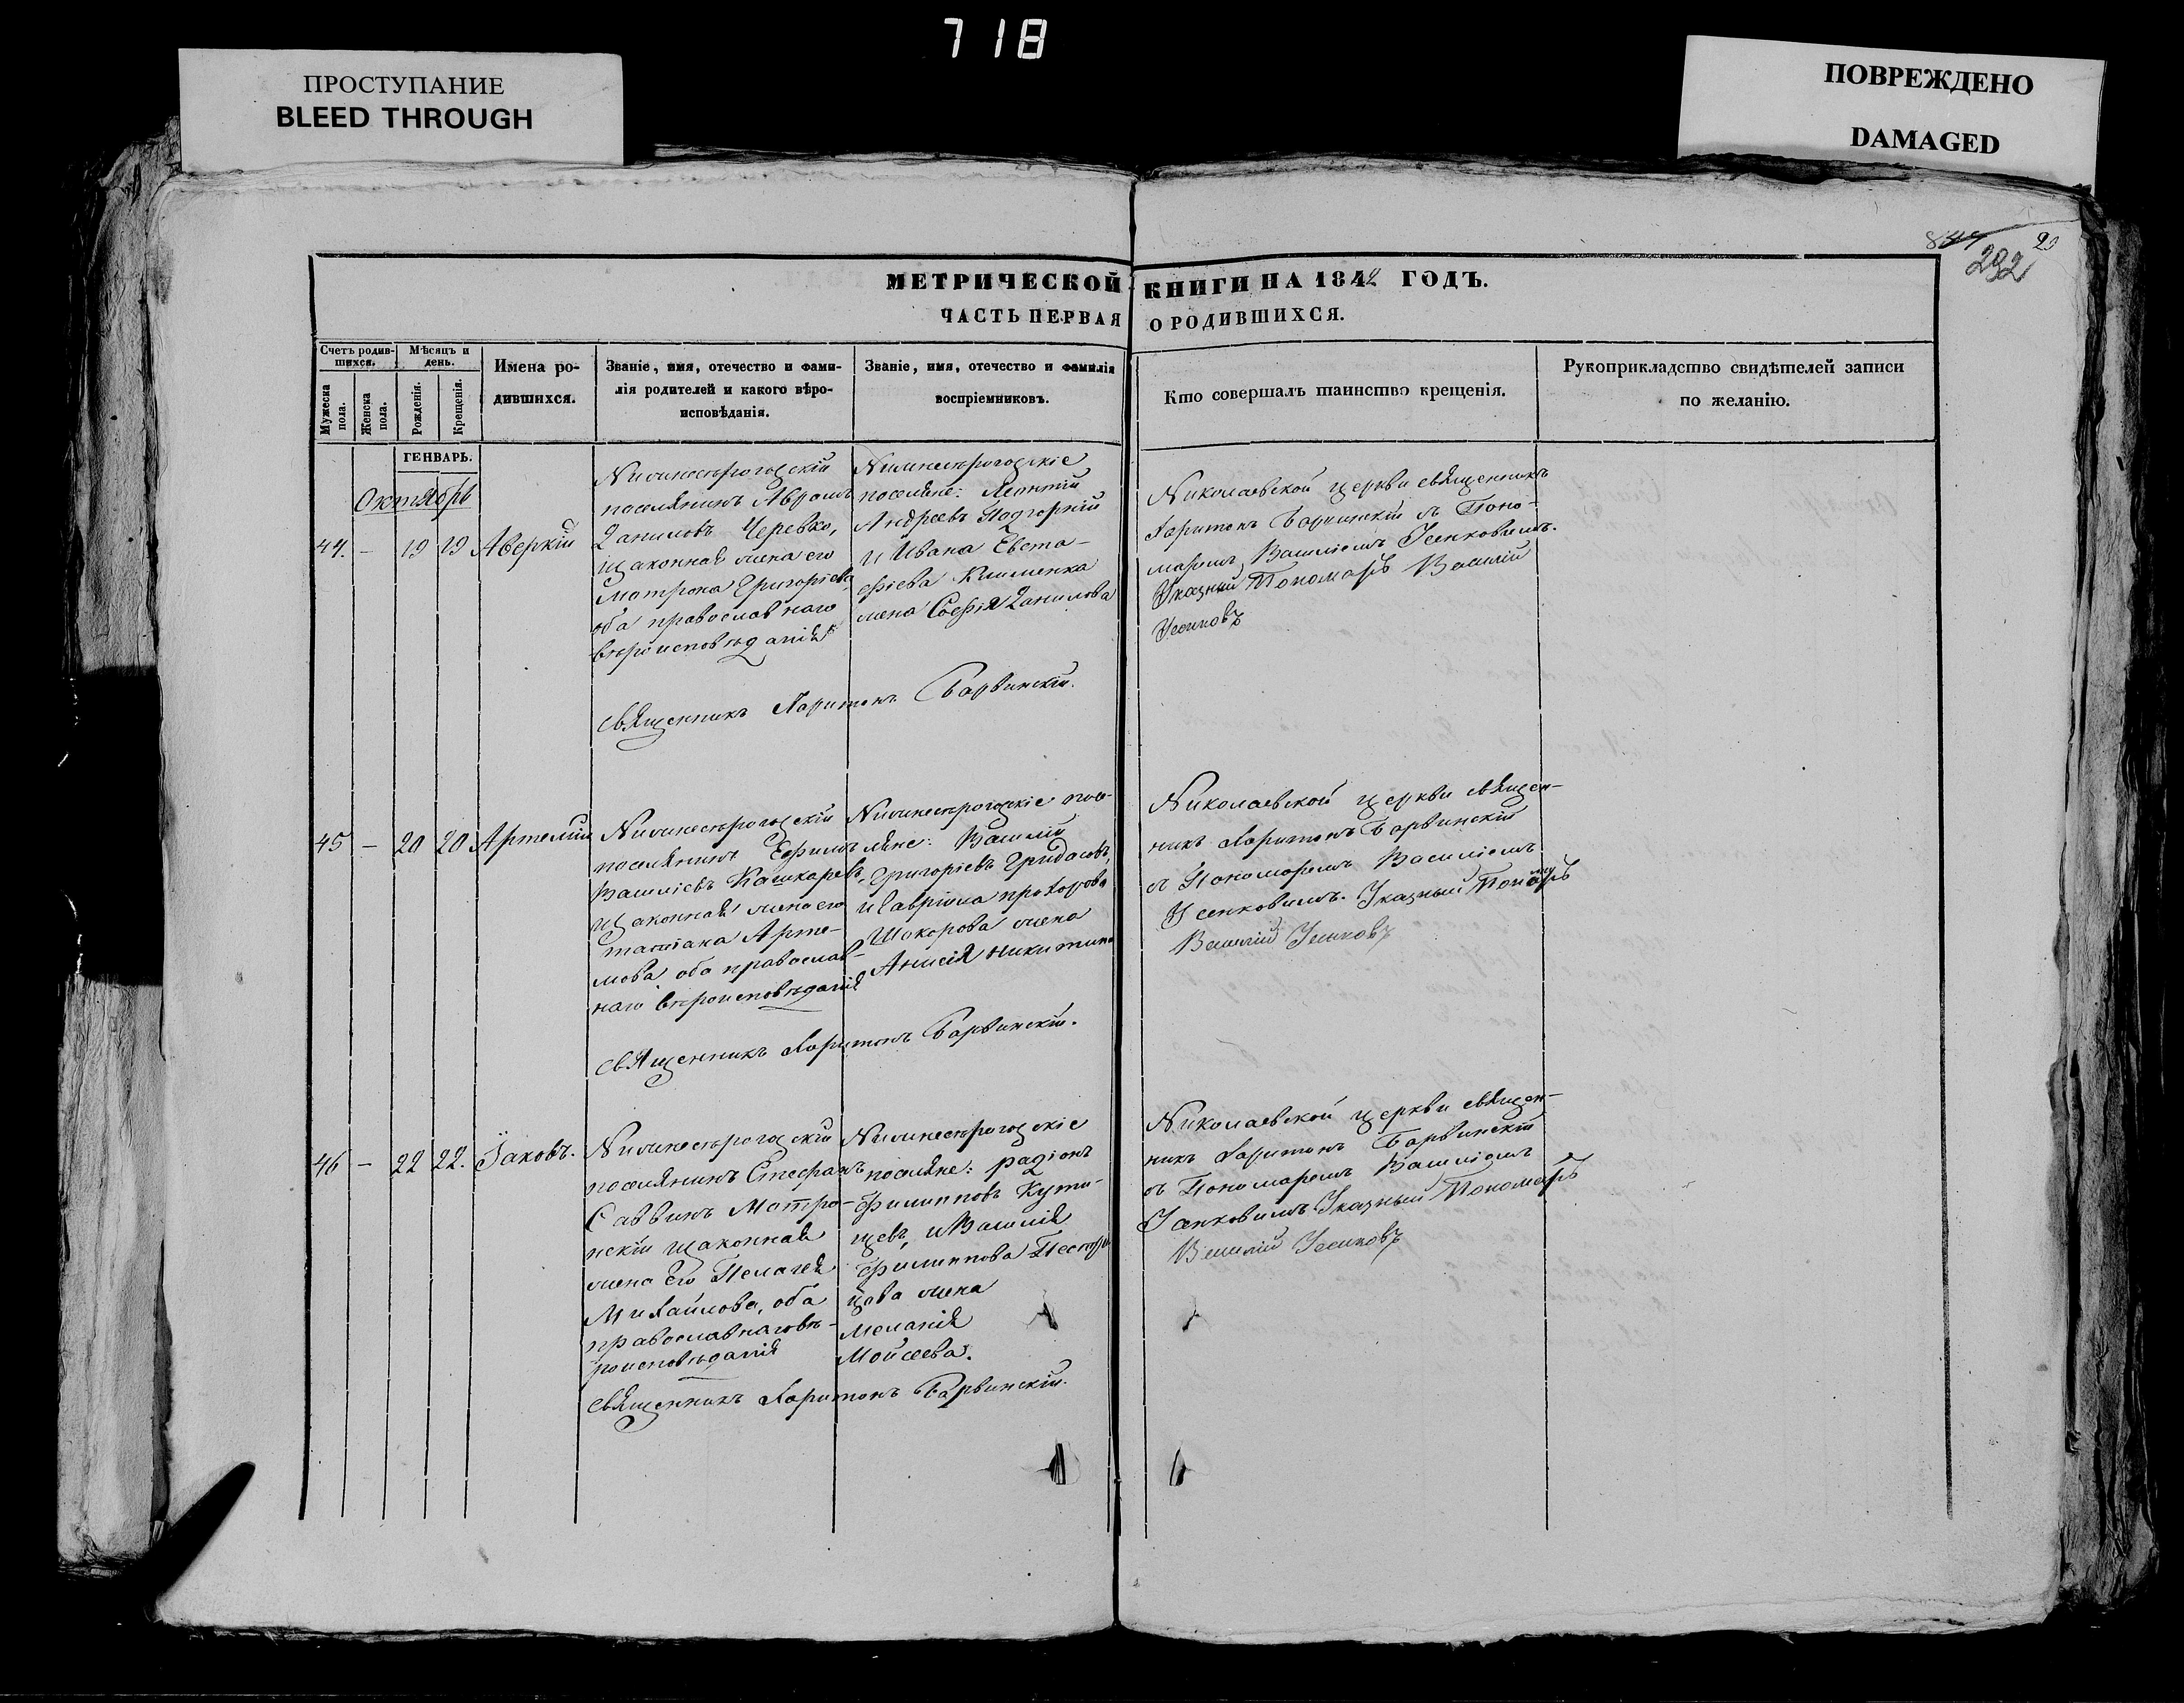 718
ПРОСТУПАНИЕ
BLEED THROUGH
ПОВРЕЖДЕНО
DAMAGED
292
МЕТРИЧЕСКОЙ КНИГИ НА 1842 ГОДЪ.
ЧАСТЬ ПЕРВАЯ О РОДИВШИХСЯ.
Счетъ родив-
шихся.
Мужеска
пола.
Женска
пола.
Мѣсяцъ и
день.
Рожденія.
Крещенія.
Имена ро-
дившихся.
Званіе, имя, отечество и фами-
лія родителей и какого вѣро-
исповѣданія.
Званіе, имя, отечество и фамилія
воспріемниковъ.
Кто совершалъ таинство крещенія.
Рукоприкладство свидѣтелей записи
по желанію.
ГЕНВАРЬ.
Октябрь
44. - 19 19 Аверкій
Нижнесѣрогозскій
поселянинъ Аврамъ
Даниловъ Черевко,
и законная жена его
Матрона Григоріева,
оба православнаго
вѣроисповѣданія
Нижнесѣрогозскіе
поселяне: Леонтій
Андреевъ Подгорній
и Ивана Евста-
фіева Клименка
жена Софія Данилова
Николаевской церкви священникъ
Харитонъ Барвинскій съ Поно-
маремъ Василіемъ Усенковимъ.
Указный Пономарь Василій
Усенковъ
священникъ Харитонъ Барвинскій.
45 - 20 20 Артемій
Нижнесѣрогозскій
поселянинъ Ефимъ
Василіевъ Кашкаревъ,
и законная жена его
Татіана Арте-
мова, оба православ-
наго вѣроисповѣданія
Нижнесѣрогозскіе посе-
ляне: Василій
Григоріевъ Гридасовъ,
и Гавріила прохорова
Шокорова жена
Анисія никитина
Николаевской церкви священ-
никъ Харитонъ Барвинскій
съ Пономаремъ Василіемъ
Усенковимъ. Указный Пономарь
Василій Усенковъ
священникъ Харитонъ Барвинскій.
46 - 22 22. Іаковъ.
Нижнесѣрогозскій
поселянинъ Стефанъ
Саввинъ Матро-
нскій и законная
жена его Пелагея
Михайлова, оба
православнаго вѣ-
роисповѣданія
Нижнесѣрогозскіе
поселяне: радіонъ
Филипповъ Кути-
щевъ, и Василія
Филиппова
жена
Меланія
Мойсеева.
Николаевской церкви священ-
никъ Харитонъ Барвинскій
съ Пономаремъ Василіемъ
Усенковимъ Указный Пономарь
Василій Усенковъ
священникъ Харитонъ Барвинскій.